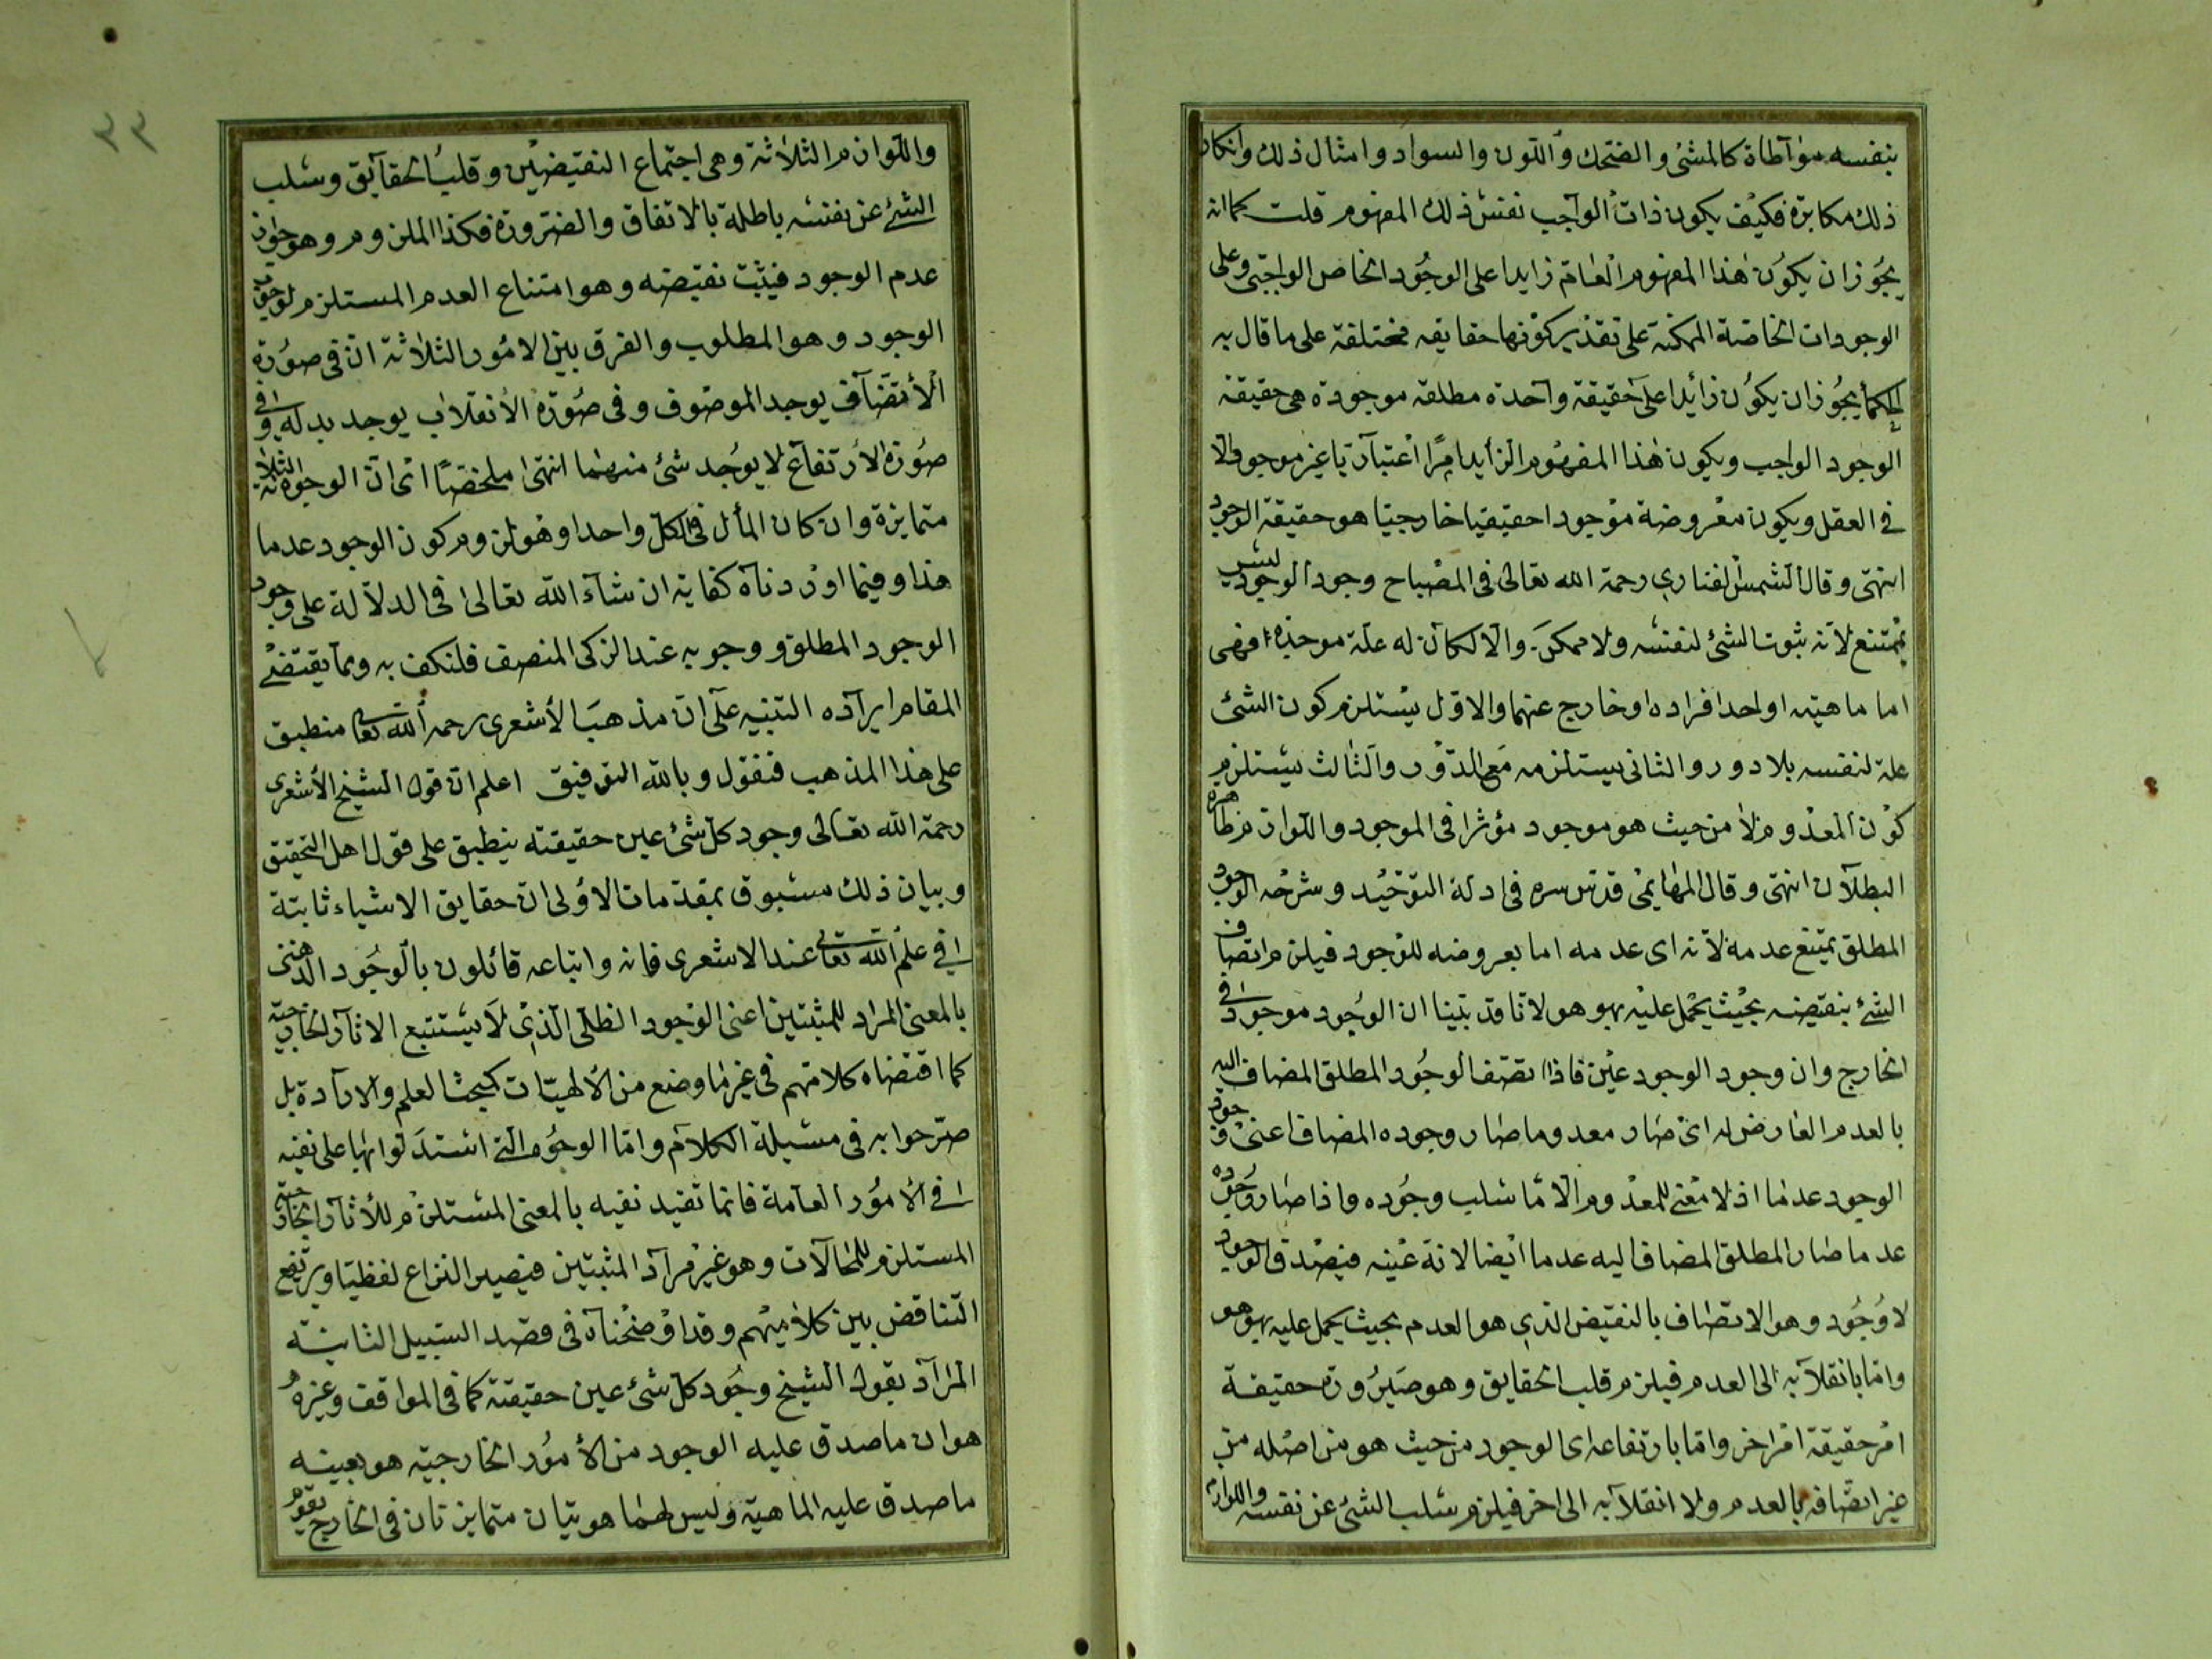 بنفسه مواطاة كالمشى والضحك واللون والسواد وامثال ذلك وانكار
ذلك مكابرة فكيف يكون ذات الواجب نفس ذلك المفهوم قلت كما انه
يجوز ان يكون هذا المفهوم العام زايدا على الوجود الخاص الواجبى وعلى
الوجودات الخاصة الممكنة على تقدير كونها حقايقه مختلفة على ما قال به
الحكما يجوز ان يكون زائدا على حقيقة واحدة مطلقه موجودة هى حقيقة
الوجود الواجب ويكون هذا المفهوم الزايد امرا اعتباريا غير موجود الا
فى العقل ويكون معروضة موجودا حقيقيا خارجيا هو حقيقة الوجود
انتهى وقال الشمس الفنارى رحمة الله تعالى فى المصباح وجود الوجود ليس
بممتنع لانه ثبوت الشئ لنفسه ولا ممكن والا لكان له علة موجدة فهى
اما ماهيته او احد افراده او خارج عنهما والاول يستلزم كون الشئ
علة لنفسه بلا دور والثانى يستلزمه مع الدور والثالث يستلزم
كون المعدوم لا من حيث هو موجود مؤثرا فى الموجود واللوازم ظاهرة
البطلان انتهى وقال المهايمى قدس سره فى ادلة التوحيد وشرحه الوجود
المطلق يمتنع عدمه لانه اى عدمه اما بعروضه للوجود فيلزم اتصاف
الشئ بنقيضه بحيث يحمل عليه بهو هو لانا قد بينا ان الوجود موجود فى
الخارج وان وجود الوجود عين فاذا اتصف الوجود المطلق المضاف اليه
بالعدم العارض له اى صار معدوما صار وجوده المضاف اعنى وجود
الوجود عدما اذ لا معنى للمعدوم الا ما سلب وجوده واذا صار وجوده
عدما صار المطلق المضاف اليه عدما ايضا لانه عينه فيصدق الوجود
لا وجود وهو الاتصاف بالنقيض الذى هو العدم بحيث يحمل عليه بهو هو
واما بانقلابه الى العدم فيلزم قلب الحقايق وهو صيرورة حقيقة
امر حقيقة امر اخر واما بارتفاعه اى الوجود من حيث هو من اصله من
غير اتصافه بالعدم ولا انقلابه الى اخر فيلزم سلب الشئ عن نفسه واللوازم
واللوازم الثلاثة وهى اجتماع النقيضين وقلب الحقايق وسلب
الشئ عن نفسه باطلة بالاتفاق والضرورة فكذا الملزوم وهو جواز
عدم الوجود فيثبت نقيضه وهو امتناع العدم المستلزم لوجوب
الوجود وهو المطلوب والفرق بين الامور الثلاثة ان فى صورة
الاتصاف يوجد الموصوف وفى صورة الانقلاب يوجد بدله وفى
صورة الارتفاع لا يوجد شئ منهما انتهى ملخصا اى ان الوجوه الثلاثة
متمايزة وان كان المأل فى الكل واحدا وهو لزوم كون الوجود عدما
هذا وفيما اوردناه كفاية ان شاء الله تعالى فى الدلالة على وجود
الوجود المطلق ووجوبه عند الزكى المنصف فلنكف به ومما يقتضى
المقام ايراده التنبيه على ان مذهب الأشعرى رحمه الله تعالى منطبق
على هذا المذهب فنقول وبالله التوفيق اعلم ان قول الشيخ الأشعرى
رحمة الله تعالى وجود كل شئ عين حقيقته ينطبق على قول اهل التحقيق
وبيان ذلك مسبوق بمقدمات الاولى ان حقايق الاشياء ثابتة
فى علم الله تعالى عند الاشعرى فانه واتباعه قائلون بالوجود الذهنى
بالمعنى المراد للمثبتين اعنى الوجود الظلى الذى لا يستتبع الاثار الخارجية
كما اقتضاه كلامهم فى غير ما وضع من الالهيات كبحث العلم والارادة بل
صرحوا به فى مسيلة الكلام واما الوجوه التى استدلوا بها على نفيه
فى الأمور العامة فانما تفيد نفيه بالمعنى المستلزم للأثار الخارجية
المستلزم للمحالات وهو غير مراد المثبتين فيصير النزاع لفظيا ويرتفع
التناقض بين كلاميهم وقد اوضحناه فى قصد السبيل الثانية
المراد بقول الشيخ وجود كل شئ عين حقيقته كما فى المواقف وغيره
هو ان ما صدق عليه الوجود من الأمور الخارجيه هو بعينه
ما صدق عليه الماهية وليس لهما هويتان متمايزتان فى الخارج يقوم